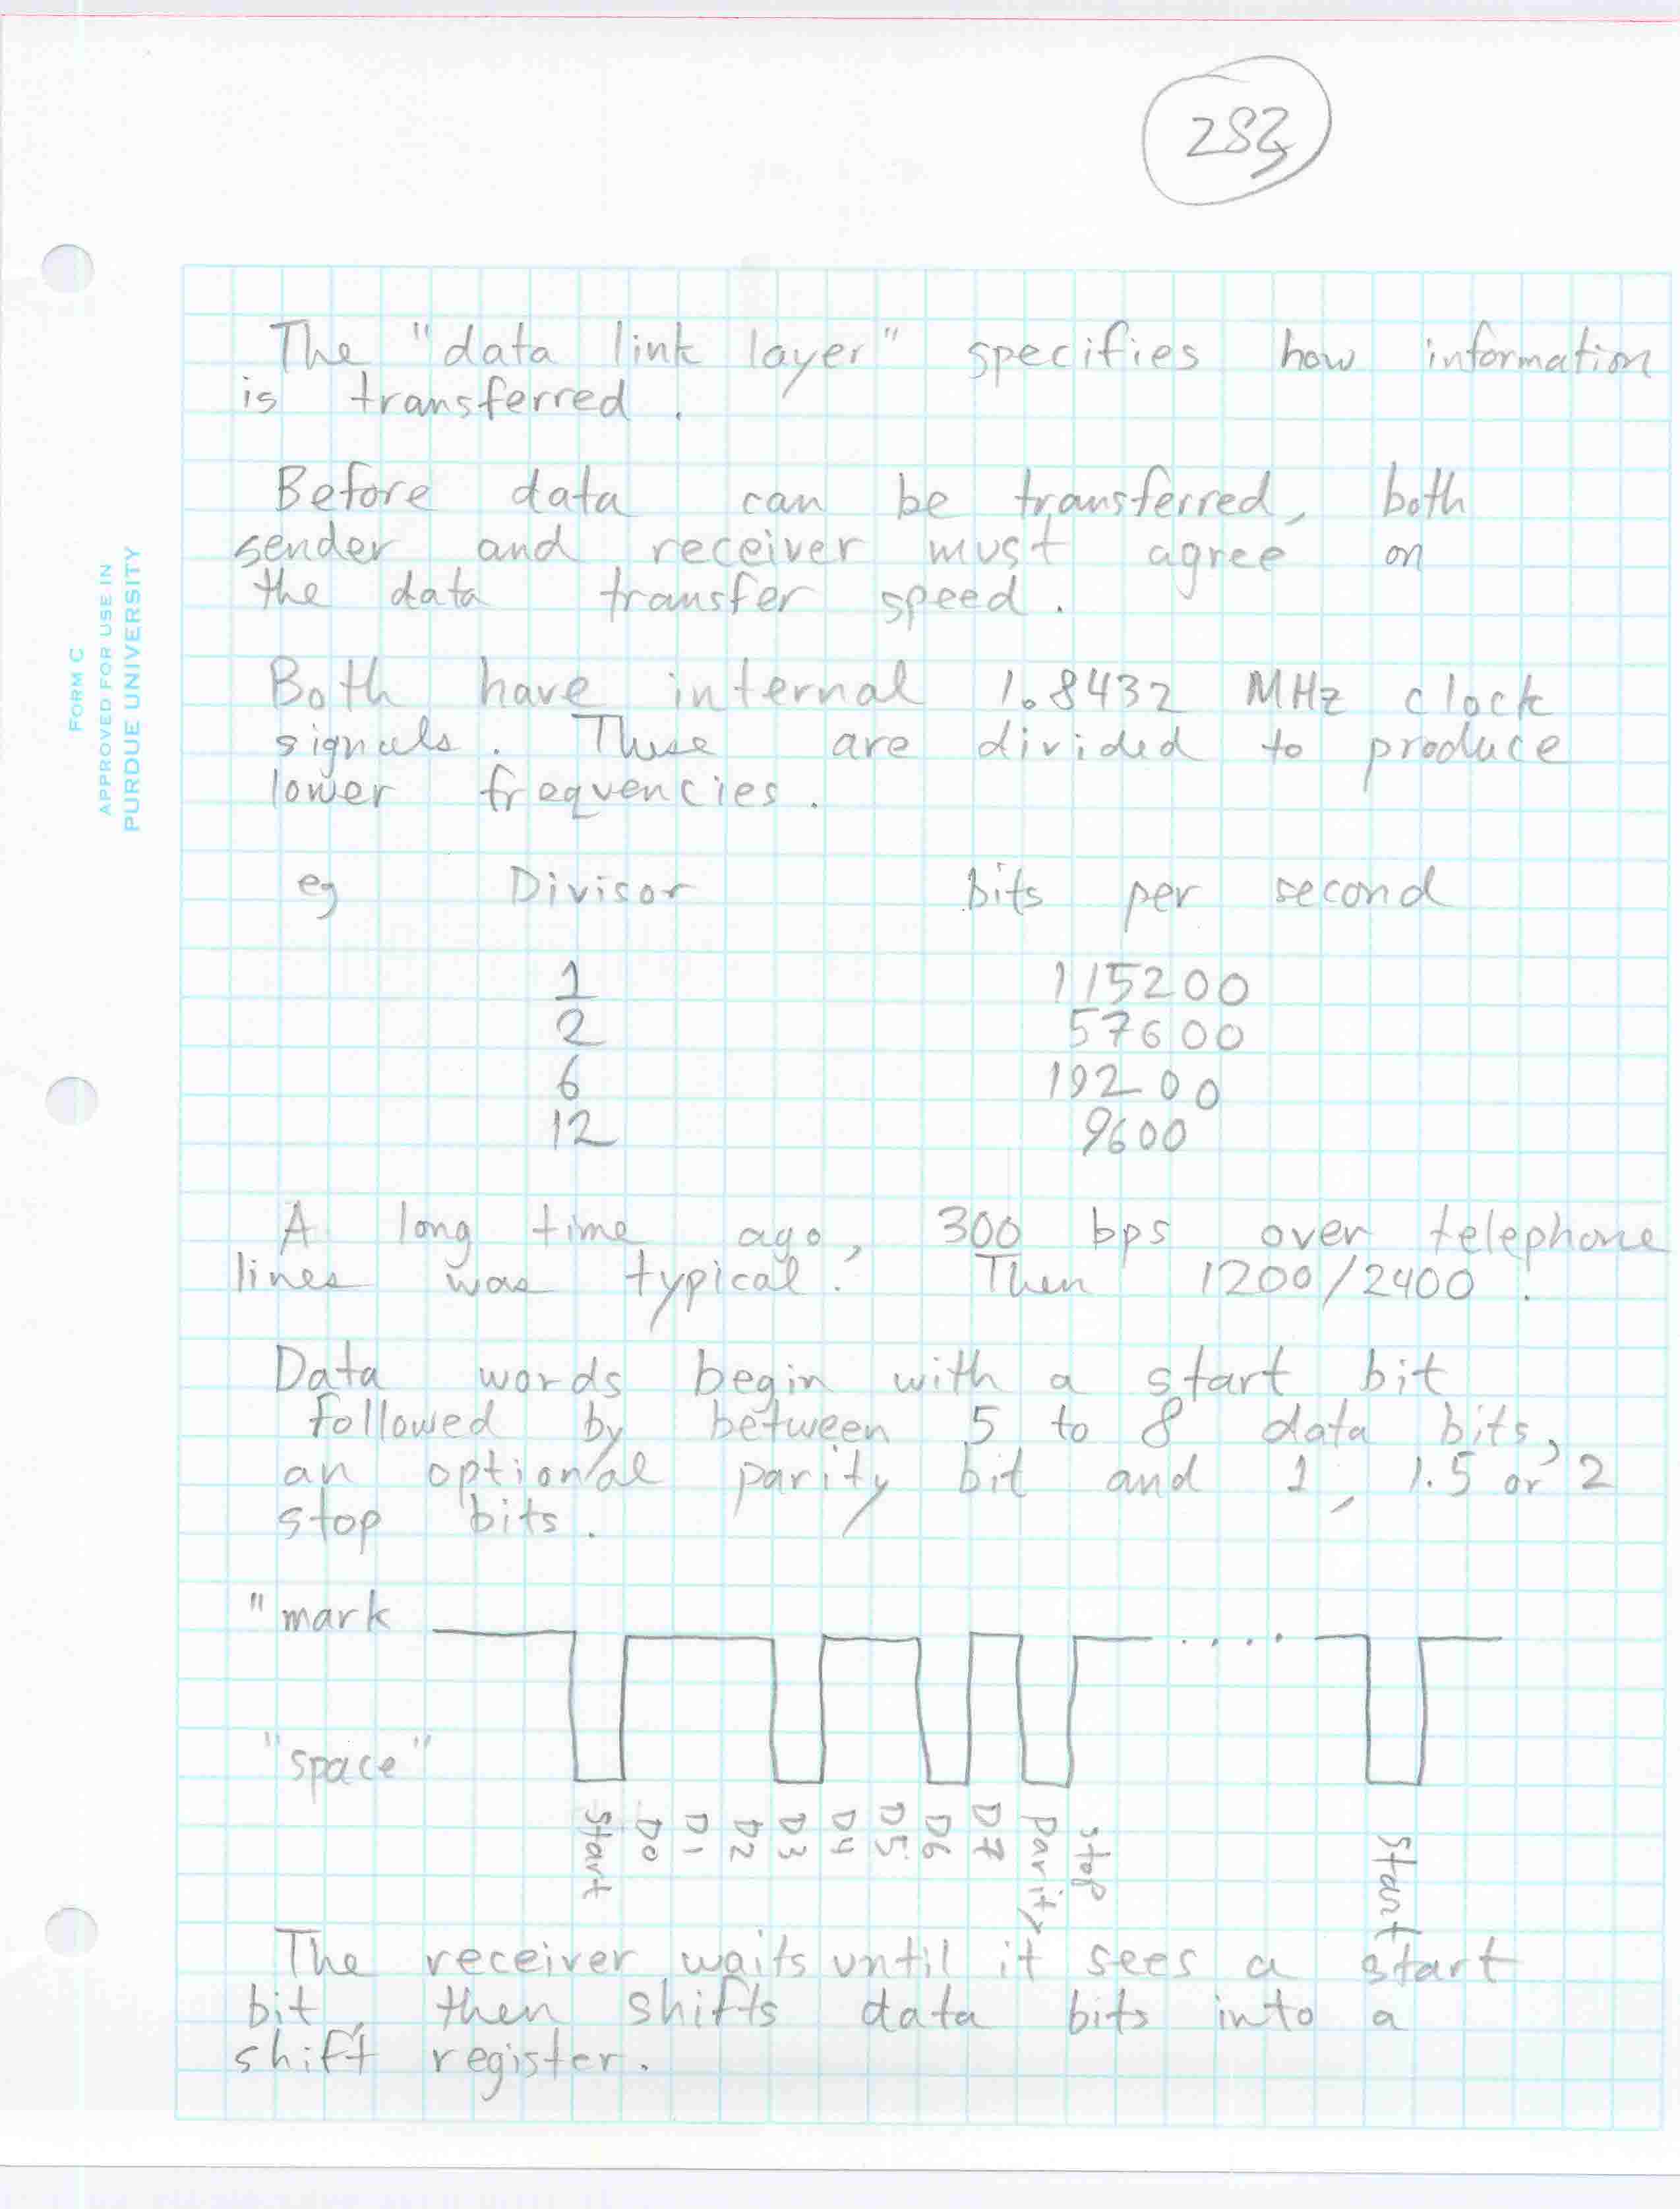 283
The "data link layer" specifies how information
is transferred.
Before data can be transferred, both
sender and receiver must agree on
the data transfer speed.
FORM C
APPROVED FOR USE IN
PURDUE UNIVERSITY
Both have internal 1.8432 MHz clock
signals. These are divided to produce
lower frequencies.
eg Divisor bits per second
1 115200
2 57600
6 19200
12 9600
A long time ago, 300 bps over telephone
lines was typical. Then 1200/2400.
Data words begin with a start bit
followed by between 5 to 8 data bits,
an optional parity bit and 1, 1.5 or 2
stop bits.
"mark
"space"
Start D0 D1 D2 D3 D4 D5 D6 D7 Parity Stop Start
The receiver waits until it sees a start
bit, then shifts data bits into a
shift register.